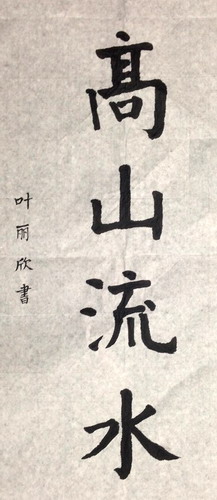 高山流水
叶雨欣書